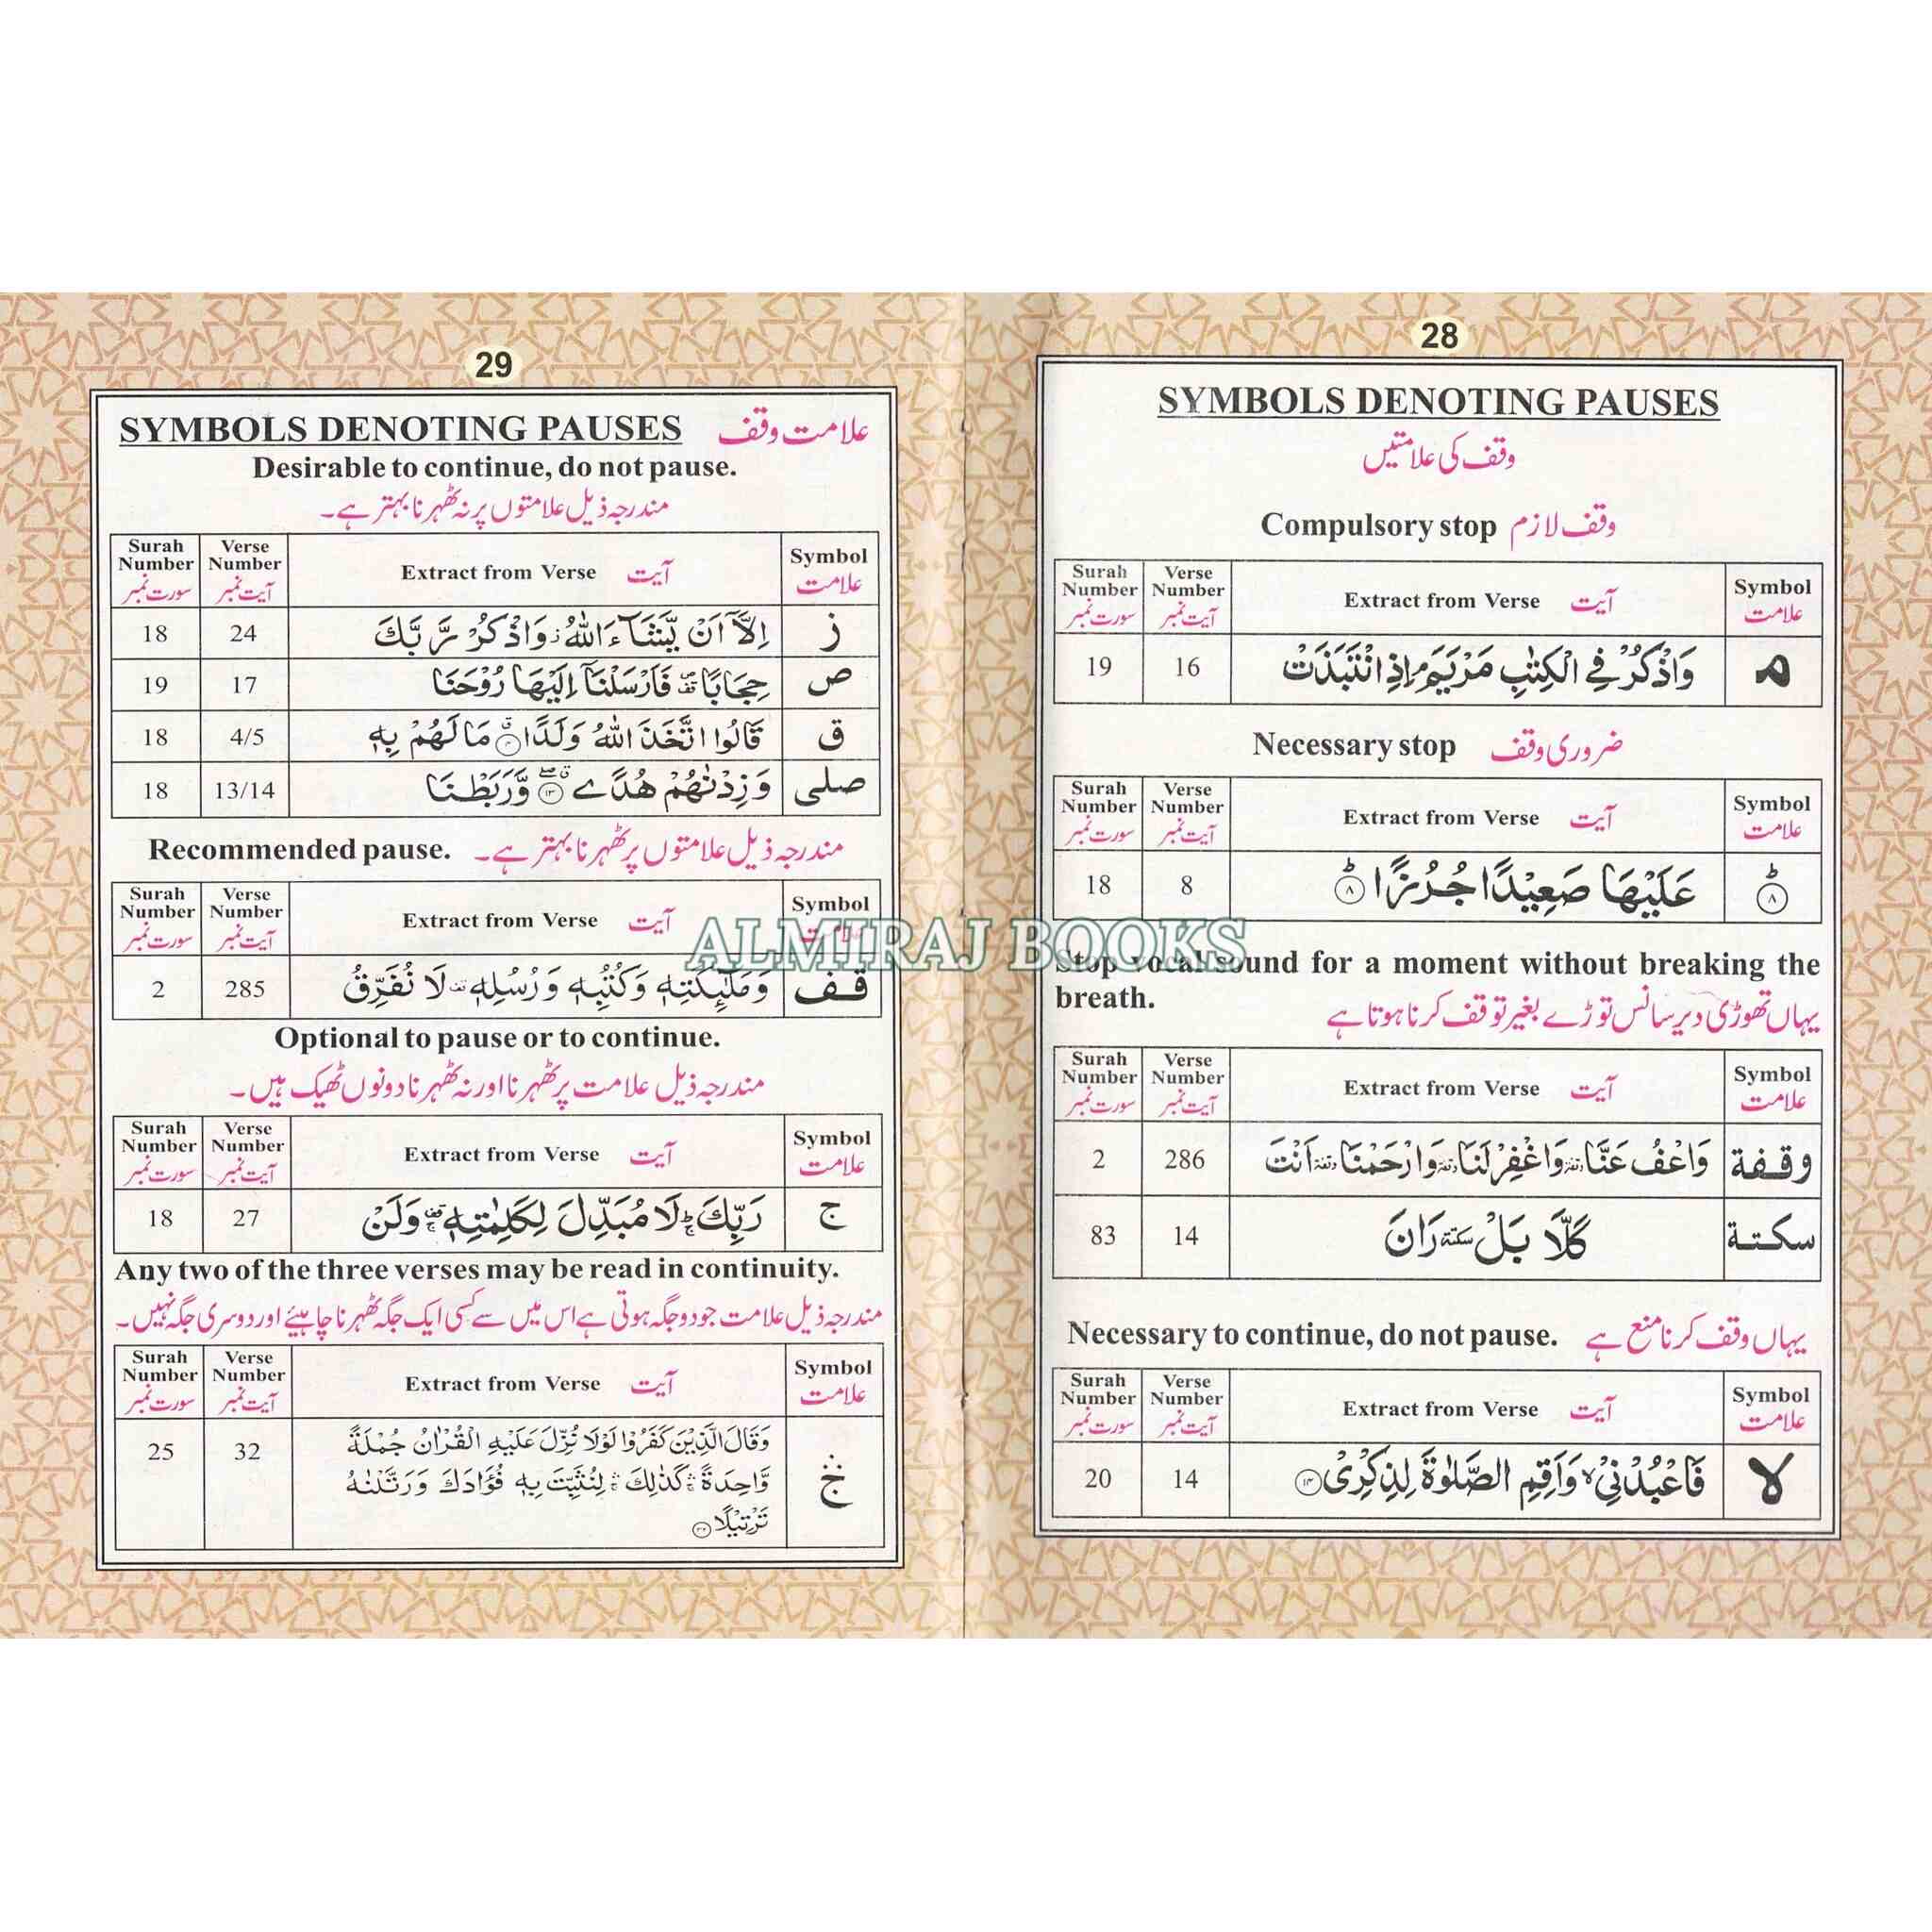 28
SYMBOLS DENOTING PAUSES
وقف کی علامتیں
Compulsory stop وقف لازم
Surah Number سورت نمبر | Verse Number آیت نمبر | Extract from Verse آیت | Symbol علامت
19 | 16 | وَاذْكُرْ فِي الْكِتٰبِ مَرْيَمَ م اِذِ انْتَبَذَتْ | م
Necessary stop ضروری وقف
Surah Number سورت نمبر | Verse Number آیت نمبر | Extract from Verse آیت | Symbol علامت
18 | 8 | عَلَيْهَا صَعِيْدًا جُرُزًا ط ۸ | ط ۸
Stop vocal sound for a moment without breaking the
breath. یہاں تھوڑی دیر سانس توڑے بغیر توقف کرنا ہوتا ہے
Surah Number سورت نمبر | Verse Number آیت نمبر | Extract from Verse آیت | Symbol علامت
2 | 286 | وَاعْفُ عَنَّا وقفة وَاغْفِرْ لَنَا وقفة وَارْحَمْنَا وقفة اَنْتَ | وقفة
83 | 14 | كَلَّا بَلْ سكتة رَانَ | سكتة
Necessary to continue, do not pause. یہاں وقف کرنا منع ہے
Surah Number سورت نمبر | Verse Number آیت نمبر | Extract from Verse آیت | Symbol علامت
20 | 14 | فَاعْبُدْنِيْ لا وَاَقِمِ الصَّلٰوةَ لِذِكْرِيْ ۱۴ | لا
29
SYMBOLS DENOTING PAUSES علامت وقف
Desirable to continue, do not pause.
مندرجہ ذیل علامتوں پر نہ ٹھہرنا بہتر ہے۔
Surah Number سورت نمبر | Verse Number آیت نمبر | Extract from Verse آیت | Symbol علامت
18 | 24 | اِلَّآ اَنْ يَّشَآءَ اللّٰهُ ز وَاذْكُرْ رَّبَّكَ | ز
19 | 17 | حِجَابًا فَاَرْسَلْنَآ اِلَيْهَا رُوْحَنَا | ص
18 | 4/5 | قَالُوا اتَّخَذَ اللّٰهُ وَلَدًا ق مَا لَهُمْ بِهٖ | ق
18 | 13/14 | وَزِدْنٰهُمْ هُدًى ۱۳ وَّرَبَطْنَا | صلى
Recommended pause. مندرجہ ذیل علامتوں پر ٹھہرنا بہتر ہے۔
Surah Number سورت نمبر | Verse Number آیت نمبر | Extract from Verse آیت | Symbol علامت
2 | 285 | وَمَلٰٓئِكَتِهٖ وَكُتُبِهٖ وَرُسُلِهٖ قف لَا نُفَرِّقُ | قف
Optional to pause or to continue.
مندرجہ ذیل علامت پر ٹھہرنا اور نہ ٹھہرنا دونوں ٹھیک ہیں۔
Surah Number سورت نمبر | Verse Number آیت نمبر | Extract from Verse آیت | Symbol علامت
18 | 27 | رَبِّكَ ج لَا مُبَدِّلَ لِكَلِمٰتِهٖ وَلَنْ | ج
Any two of the three verses may be read in continuity.
مندرجہ ذیل علامت جو دو جگہ ہوتی ہے اس میں سے کسی ایک جگہ ٹھہرنا چاہیئے اور دوسری جگہ نہیں۔
Surah Number سورت نمبر | Verse Number آیت نمبر | Extract from Verse آیت | Symbol علامت
25 | 32 | وَقَالَ الَّذِيْنَ كَفَرُوْا لَوْلَا نُزِّلَ عَلَيْهِ الْقُرْاٰنُ جُمْلَةً
وَّاحِدَةً ۛ كَذٰلِكَ ۛ لِنُثَبِّتَ بِهٖ فُؤَادَكَ وَرَتَّلْنٰهُ
تَرْتِيْلًا ۳۲ | ج ۛ
ALMIRAJ BOOKS